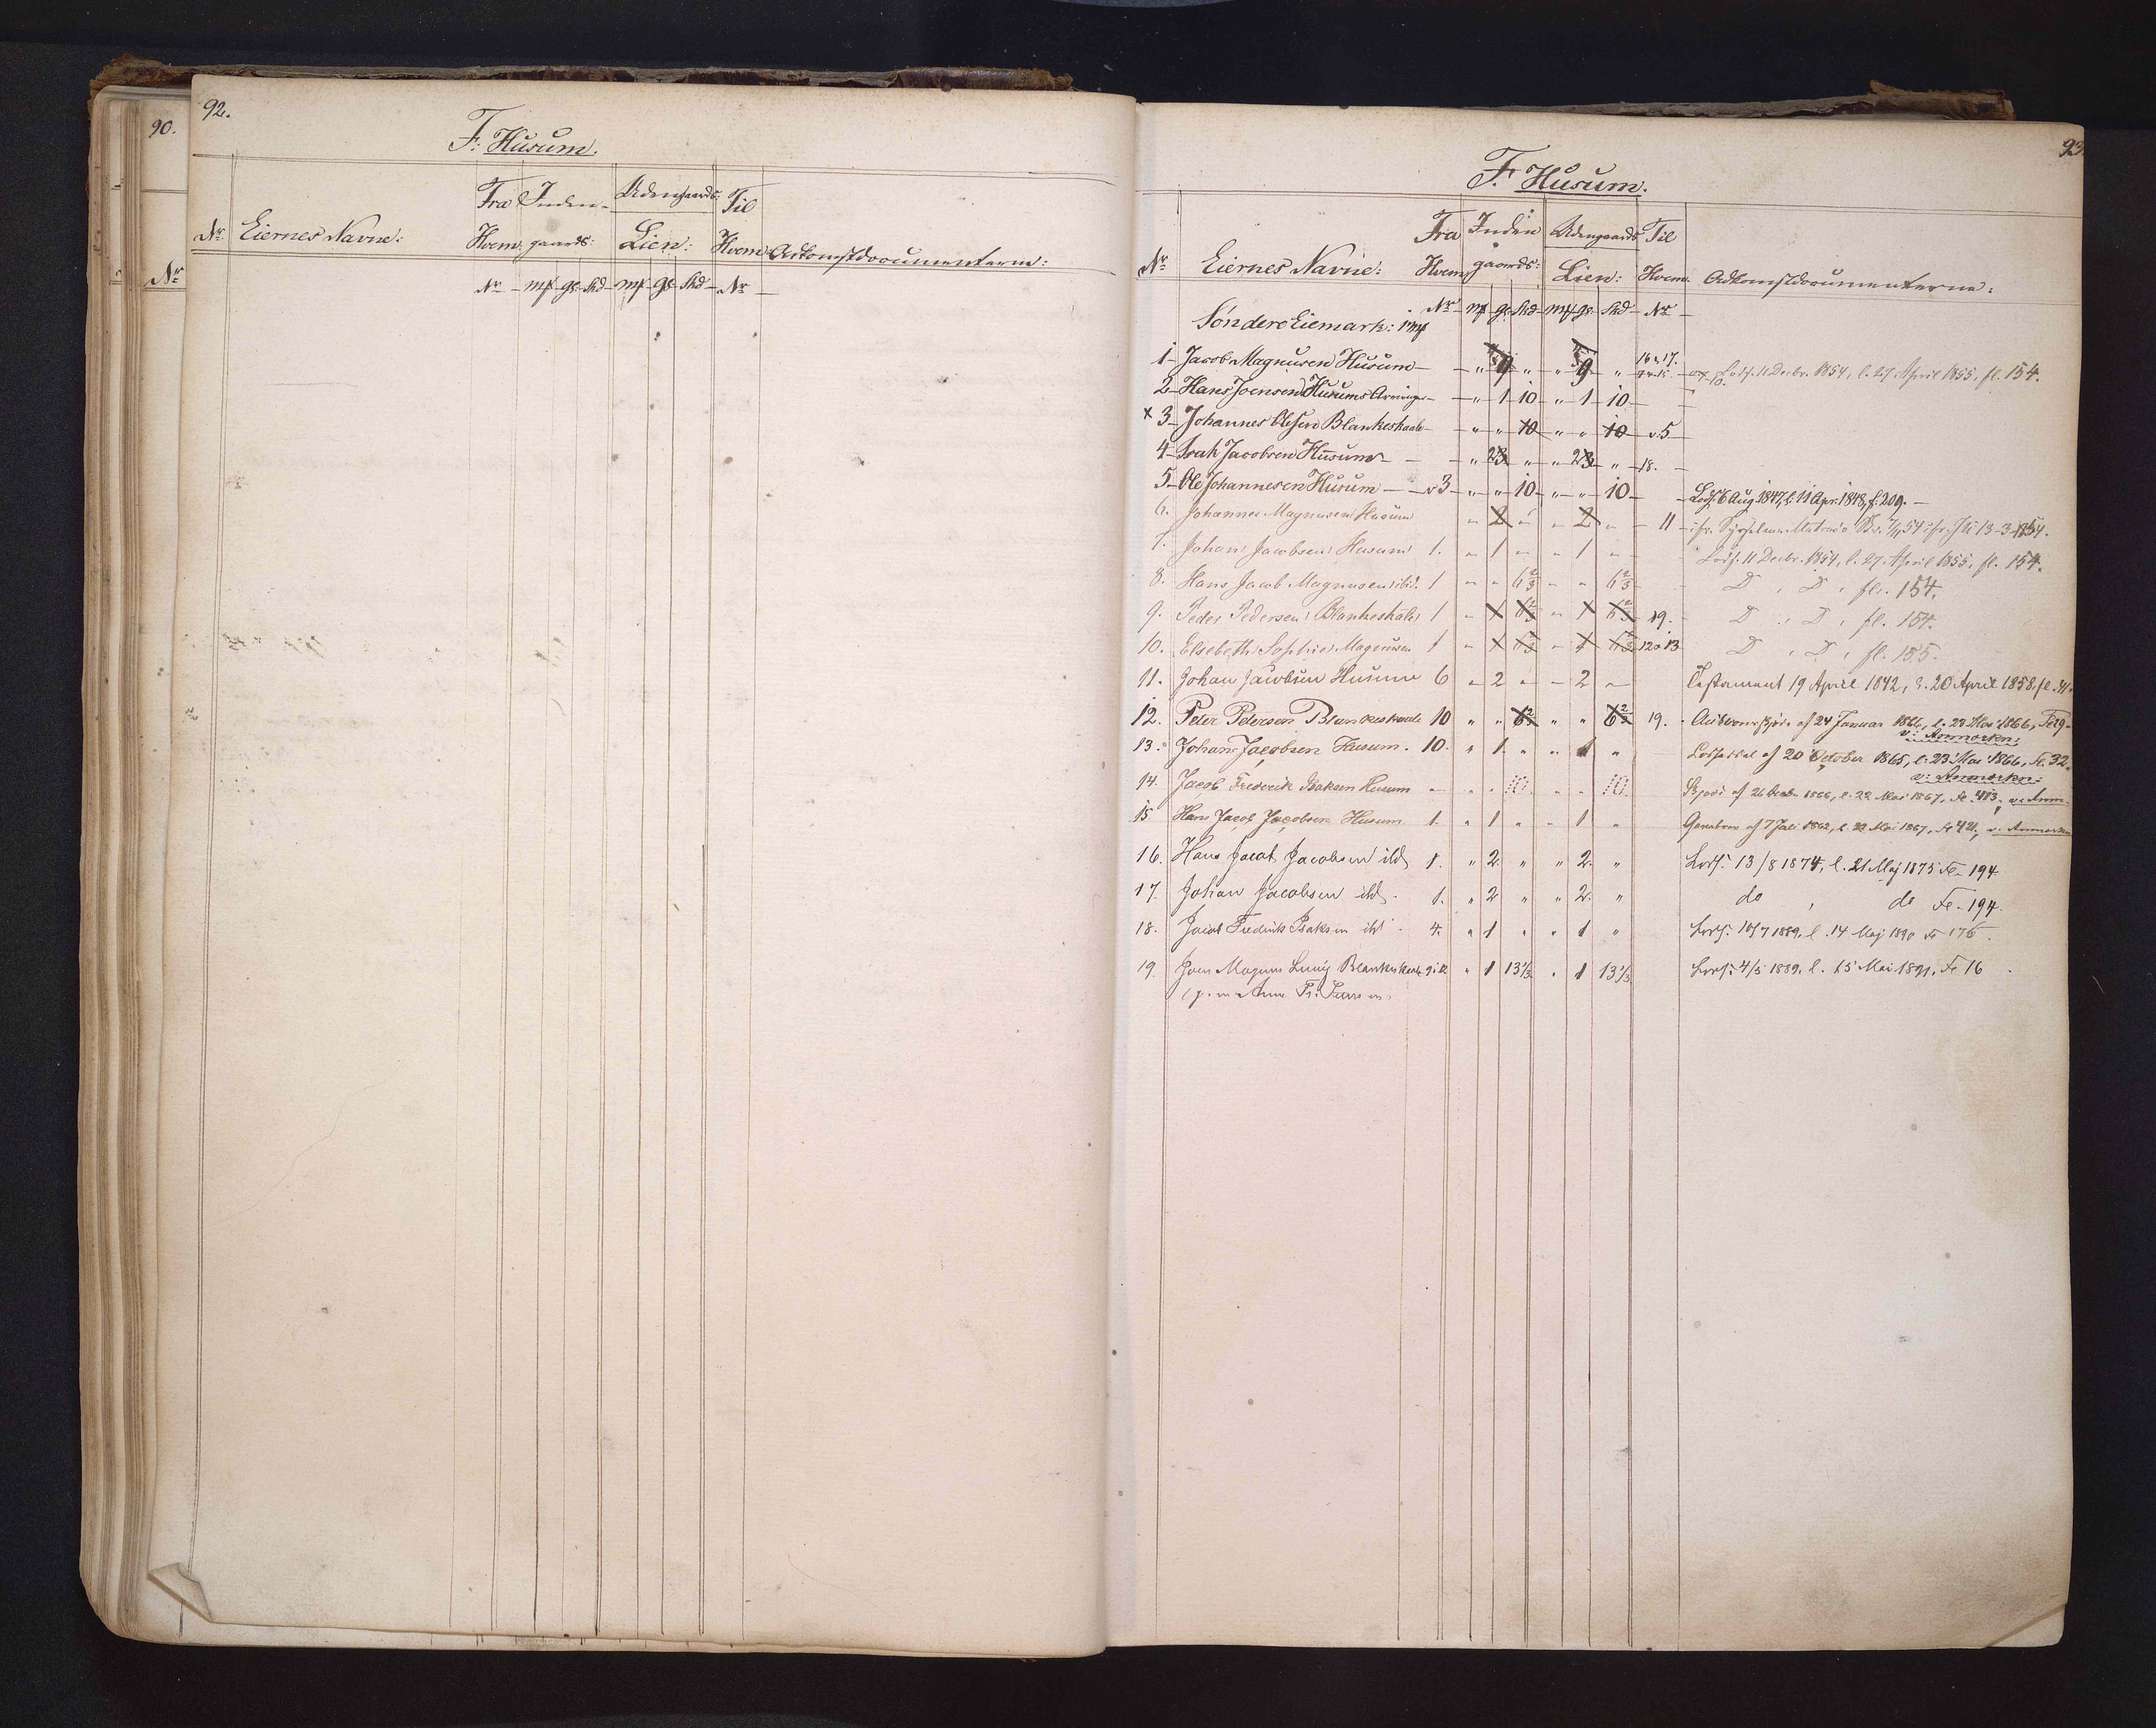 90.
Nr
92.
F: Husum.
Nr. Eiernes Navne: Fra Hvem: Inden-gaards: Udengaards: Lien: Til Hvem Adkomstdocumenterne:
Nr - mk gs. Skd - mk gs Skd - Nr -
93.
F. Husum.
Nr. Eiernes Navne: Fra Hvem Inden gaards: Udengaards Lien: Til Hvem. Adkomstdocumenterne:
Nr - mk gs Skd - mk gs. Skd - Nr -
Søndere Eiemark: 1 mk
1 - Jacob Magnusen Husum - " 9 " " 9 " 16 & 17. Lodf. 11 Decbr. 1854, l. 27 April 1855, fl. 154.
2 - Hans Joensen Husums Arvinger - " 1 10 " 1 10 -
x 3 - Johannes Olesen Blankeskaale - " " 10 " " 10 - v 5
4 - Isak Jacobsen Husum - " " " 18. -
5 - Ole Johannesen Husum - v 3 - " " 10 " " 10 - Lodf. 6 Aug. 1847, l. 11 Apr. 1848, f. 209. -
6. Johannes Magnusen Husum - 2 - - 2 - - 11 -
7. Johan Jacobsen Husum 1. - 1 - - 1 - - Lodf. 11 Decbr. 1854, l. 27. April 1855, fl. 154.
8. Hans Jacob Magnusen ibid. 1 - - 6 2/3 - - 6 2/3 D , D , fl. 154.
9. Peder Pedersen Blankeskåle 1 - 1 6 2/3 - 1 6 2/3 19. - D , D , fl. 154.
10. Elsebeth Sophie Magnusen 1 - 1 6 2/3 - 1 6 2/3 12 & 13 D , D , fl. 155.
11. Johan Jacobsen Husum 6 - 2 - - 2 - Testament 19 April 1842, l. 20 April 1858, fl. 41.
12. Peter Petersen Blankeskaale 10 " " 6 2/3 " " 6 2/3 19. Auktionsskjøde af 24 Januar 1866, l. 23 Mai 1866, Fo 29.
v: Anmærkn:
13. Johan Jacobsen Husum. 10. " 1. " " 1 " af 20 October 1865, l. 23 Mai 1866, Fo. 32.
v: Anmærkn:
14. Jacob Frederik Isaksen Husum - " " 10. " " 10. Skjøde af 26 1866, l. 22 Mai 1867, Fo 413, v: Anm.
15 Hans Jacob Jacobsen Husum 1. " 1 " " 1 " Gavebrev af 7 Juli 1862, l. 22 Mai 1867, Fo 421, v. Anmærkn
16. Hans Jacob Jacobsen ibd 1. " 2. " " 2. " Lodf. 13/8 1874, l. 21 Maj 1875 Fo - 194
17. Johan Jacobsen ibd. 1. " 2 " " 2. " do , do Fo - 194
18. Jacob Fredrik Isaksen ibd. 4. " 1 " " 1 " Lodf. 10/7 1889, l. 14 Maj 1890 Fo 176.
19. Joen Magnus Blankeskaale 9 & 12 " 1 13 1/3 " 1 13 1/3 Lodf. 4/5 1889. l. 15 Mai 1891. Fo 16